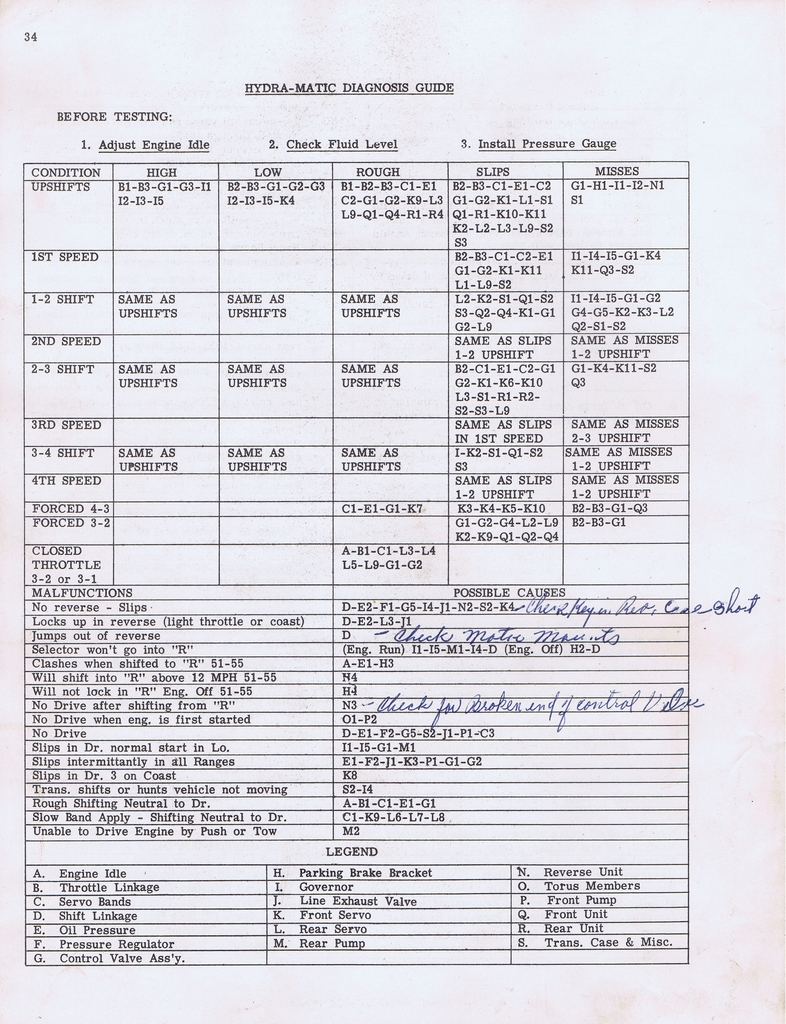 34
HYDRA-MATIC DIAGNOSIS GUIDE
BEFORE TESTING:
1. Adjust Engine Idle 2. Check Fluid Level 3. Install Pressure Gauge
CONDITION HIGH LOW ROUGH SLIPS MISSES
UPSHIFTS B1-B3-G1-G3-I1 B2-B3-G1-G2-G3 B1-B2-B3-C1-E1 B2-B3-C1-E1-C2 G1-H1-I1-I2-N1
I2-I3-I5 I2-I3-I5-K4 C2-G1-G2-K9-L3 G1-G2-K1-L1-S1 S1
L9-Q1-Q4-R1-R4 Q1-R1-K10-K11
K2-L2-L3-L9-S2
S3
1ST SPEED B2-B3-C1-C2-E1 I1-I4-I5-G1-K4
G1-G2-K1-K11 K11-Q3-S2
L1-L9-S2
1-2 SHIFT SAME AS SAME AS SAME AS L2-K2-S1-Q1-S2 I1-I4-I5-G1-G2
UPSHIFTS UPSHIFTS UPSHIFTS S3-Q2-Q4-K1-G1 G4-G5-K2-K3-L2
G2-L9 Q2-S1-S2
2ND SPEED SAME AS SLIPS SAME AS MISSES
1-2 UPSHIFT 1-2 UPSHIFT
2-3 SHIFT SAME AS SAME AS SAME AS B2-C1-E1-C2-G1 G1-K4-K11-S2
UPSHIFTS UPSHIFTS UPSHIFTS G2-K1-K6-K10 Q3
L3-S1-R1-R2-
S2-S3-L9
3RD SPEED SAME AS SLIPS SAME AS MISSES
IN 1ST SPEED 2-3 UPSHIFT
3-4 SHIFT SAME AS SAME AS SAME AS I-K2-S1-Q1-S2 SAME AS MISSES
UPSHIFTS UPSHIFTS UPSHIFTS S3 1-2 UPSHIFT
4TH SPEED SAME AS SLIPS SAME AS MISSES
1-2 UPSHIFT 1-2 UPSHIFT
FORCED 4-3 C1-E1-G1-K7 K3-K4-K5-K10 B2-B3-G1-Q3
FORCED 3-2 G1-G2-G4-L2-L9 B2-B3-G1
K2-K9-Q1-Q2-Q4
CLOSED A-B1-C1-L3-L4
THROTTLE L5-L9-G1-G2
3-2 or 3-1
MALFUNCTIONS POSSIBLE CAUSES
No reverse - Slips D-E2-F1-G5-I4-J1-N2-S2-K4 - Check Key in Rev. Case Short
Locks up in reverse (light throttle or coast) D-E2-L3-J1
Jumps out of reverse D - Check Motor Mounts
Selector won't go into "R" (Eng. Run) I1-I5-M1-I4-D (Eng. Off) H2-D
Clashes when shifted to "R" 51-55 A-E1-H3
Will shift into "R" above 12 MPH 51-55 N4
Will not lock in "R" Eng. Off 51-55 H4
No Drive after shifting from "R" N3 - Check for Broken end of control Valve
No Drive when eng. is first started O1-P2
No Drive D-E1-F2-G5-S2-J1-P1-C3
Slips in Dr. normal start in Lo. I1-I5-G1-M1
Slips intermittently in all Ranges E1-F2-J1-K3-P1-G1-G2
Slips in Dr. 3 on Coast K8
Trans. shifts or hunts vehicle not moving S2-I4
Rough Shifting Neutral to Dr. A-B1-C1-E1-G1
Slow Band Apply - Shifting Neutral to Dr. C1-K9-L6-L7-L8
Unable to Drive Engine by Push or Tow M2
LEGEND
A. Engine Idle H. Parking Brake Bracket N. Reverse Unit
B. Throttle Linkage I. Governor O. Torus Members
C. Servo Bands J. Line Exhaust Valve P. Front Pump
D. Shift Linkage K. Front Servo Q. Front Unit
E. Oil Pressure L. Rear Servo R. Rear Unit
F. Pressure Regulator M. Rear Pump S. Trans. Case & Misc.
G. Control Valve Ass'y.